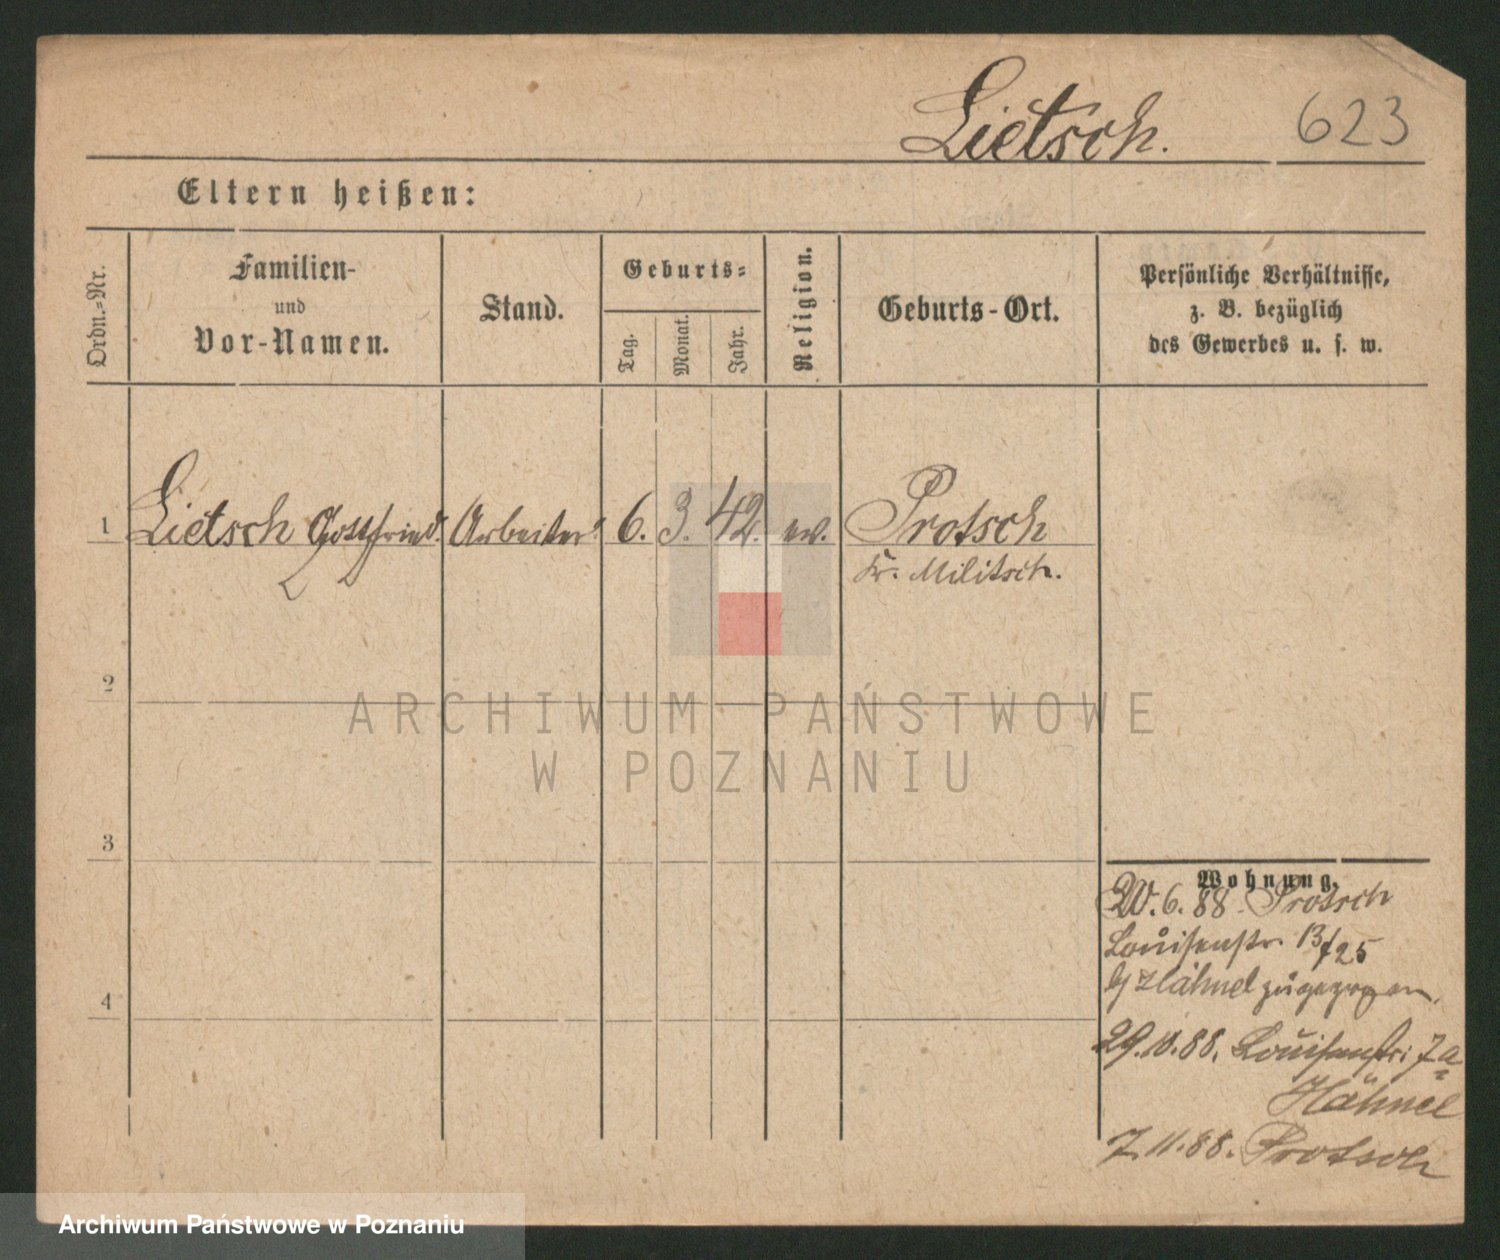 Lietsch. 623
Eltern heißen:
Ordn.-Nr.
Familien-
und
Vor-Namen.
Stand.
Geburts-
Tag.
Monat.
Jahr.
Religion.
Geburts-Ort.
Persönliche Verhältnisse,
z. B. bezüglich
des Gewerbes u. s. w.
1 Lietsch Gottfried. Arbeiter 6. 3. 42. ev. Protsch
Kr. Militsch.
2
3
4
Wohnung.
6. 88. Protsch
Louisenstr. 13/25
Hähnel zugezogen.
29.10.88. Louisenstr: 7a
Hähnel
7.11.88. Protsch
ARCHIWUM PAŃSTWOWE
W POZNANIU
Archiwum Państwowe w Poznaniu